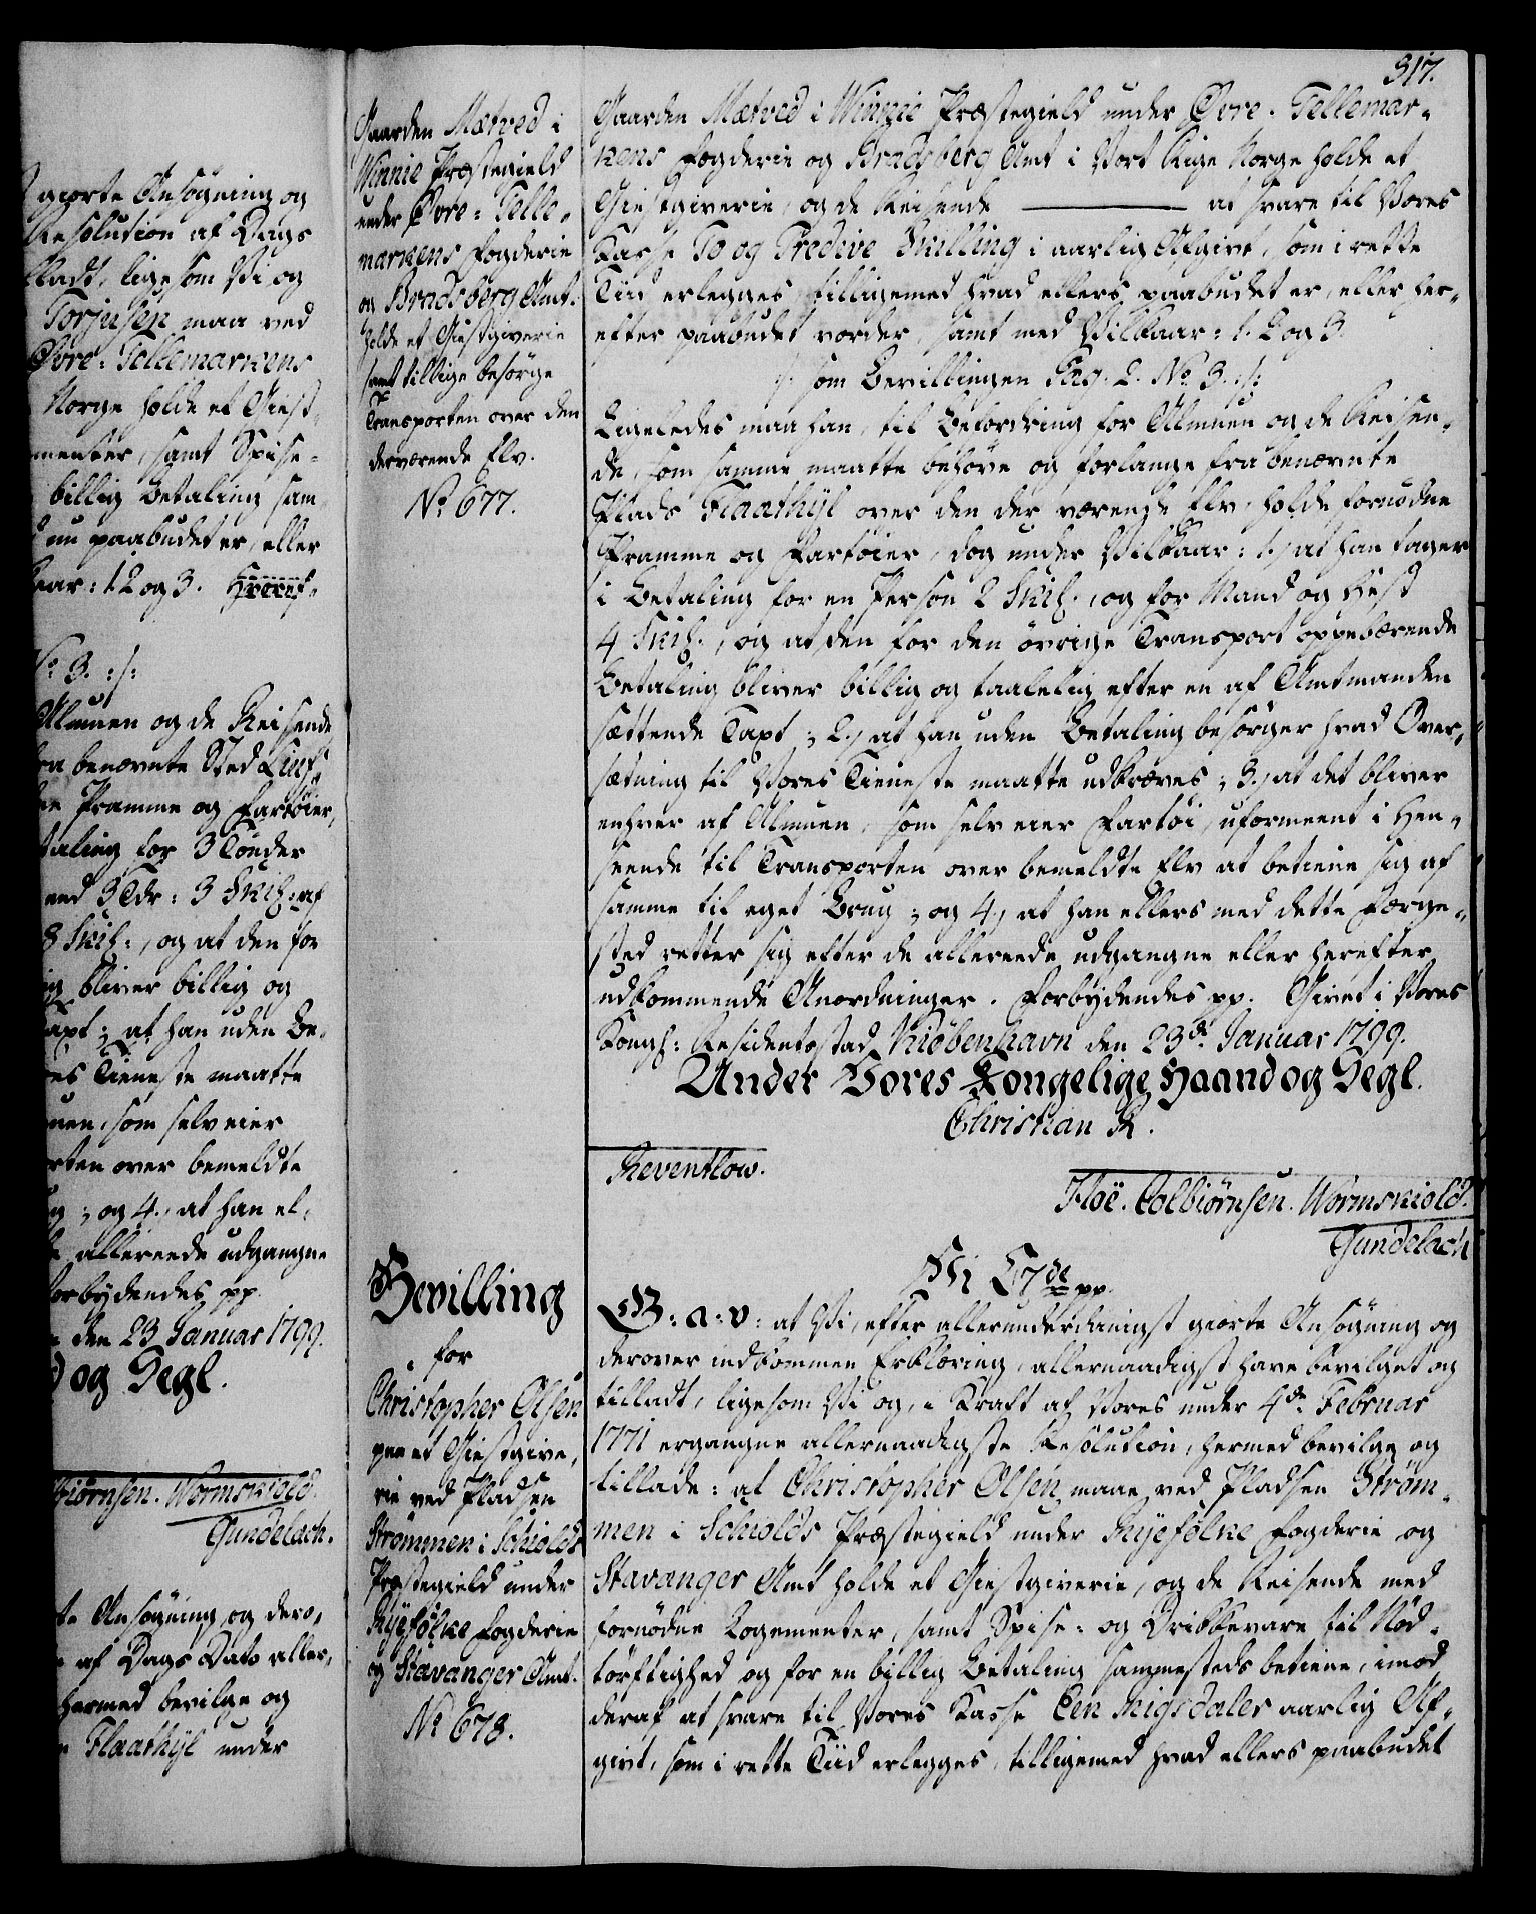 giorte Ansøgning og
Resolution af Dags
tilladt, ligesom Vi og
Torjusen maa ved
Øvre-Tellemarkens
Norge holde et Giest-
menter, samt Spise-
billig Betaling sam-
nu paabudet er, eller
kaar: 1. 2 og 3.
No 3. :/:
Almuen og de Reisende
fra benævnte Sted
Pramme og Fartøier,
taling for 3 Tønder
3 Tdr: 3 Skil: af
8 Skil:, og at den for
bliver billig og
Taxt; at han uden Be-
res Tieneste maatte
muen, som selv eier
orten over bemeldte
og 4., at han el-
allereede udgangne
Forbydendes pp.
den 23 Januar 1799.
og Segl.
biørnsen. Wormskiold.
Gundelach.
te Ansøgning og dero-
af Dags Dato aller-
hermed bevilge og
Flaathyl under
Gaarden Mætved i
Winnie Præstegield
under Øvre-Telle-
markens Fogderie
og Bradsberg Amt.
holde et Giestgiverie
samt tillige besørge
Transporten over den
derværende Elv.
No 677.
Bevilling
for
Christopher Olsen
paa et Giestgive-
rie ved Pladsen
Strømmen i Schiolds
Præstegield under
Ryefølke Fogderie
og Stavanger Amt.
No 678.
317.
Gaarden Mætved i Winnie Præstegield under Øvre-Tellemar-
kens Fogderie og Bradsberg Amt i Vort Rige Norge holde et
Giestgiverie, og de Reisende ——— at svare til Vores
Kasse To og Tredive Skilling i aarlig Afgivt, som i rette
Tiid erlegges, tilligemed hvad ellers paabudet er, eller her-
efter paabudet vorder, samt med Vilkaar: 1. 2 og 3.
:/: som Bevillingen Pag. 2. No 3. :/:
Ligeledes maa han, til Befordring for Almuen og de Reisen-
de, som samme maatte behøve og forlange fra benævnte
Plads Flaathyl over den der værende Elv, holde fornødne
Pramme og Fartøier, dog under Vilkaar: 1., at han tager
i Betaling for en Person 2 Skil., og for Mand og Hest
4 Skil., og at den for den øvrige Transport oppebærende
Betaling bliver billig og taalelig efter en af Amtmanden
sættende Taxt; 2., at han uden Betaling besørger hvad Over-
sætning til Vores Tieneste maatte udkræves; 3., at det bliver
enhver af Almuen, som selv eier Fartøi, uformeent i Hen-
seende til Transporten over bemeldte Elv at betiene sig af
samme til eget Brug; og 4., at han ellers med dette Færge-
sted retter sig efter de allereede udgangne eller herefter
udkommende Anordninger. Forbydendes pp. Givet i Vores
Kongl: Residentsstad Kiøbenhavn den 23de Januar 1799.
Under Vores Kongelige Haand og Segl.
Christian R.
Reventlow.
Høe. Colbiørnsen. Wormskiold.
Gundelach
Ch: C 7de pp.
G: a: v: at Vi, efter allerunderdanigst giorte Ansøgning og
derover indkommen Erklæring, allernaadigst have bevilget og
tilladt, ligesom Vi og, i Kraft af Vores under 4de Februar
1771 ergangne allernaadigste Resolution, hermed bevilge og
tillade: at Christopher Olsen maae ved Pladsen Strøm-
men i Schiolds Præstegield under Ryefølke Fogderie og
Stavanger Amt holde et Giestgiverie, og de Reisende med
fornødne Logementer, samt Spise- og Drikkevare til Nød-
tørftighed og for en billig Betaling sammesteds betiene, imod
deraf at svare til Vores Kasse Een Rigsdaler aarlig Af-
givt, som i rette Tiid erlegges, tilligemed hvad ellers paabudet